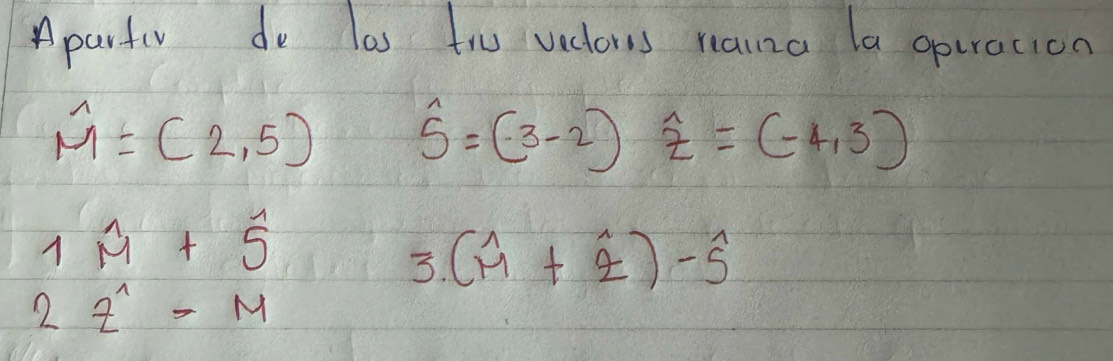 Apartir de los tres vectores realiza la operacion
M̂ = (2,5) Ŝ = (3-2) ẑ = (-4,3)
1 M̂ + Ŝ 3.(M̂ + ẑ) - Ŝ
2 ẑ - M